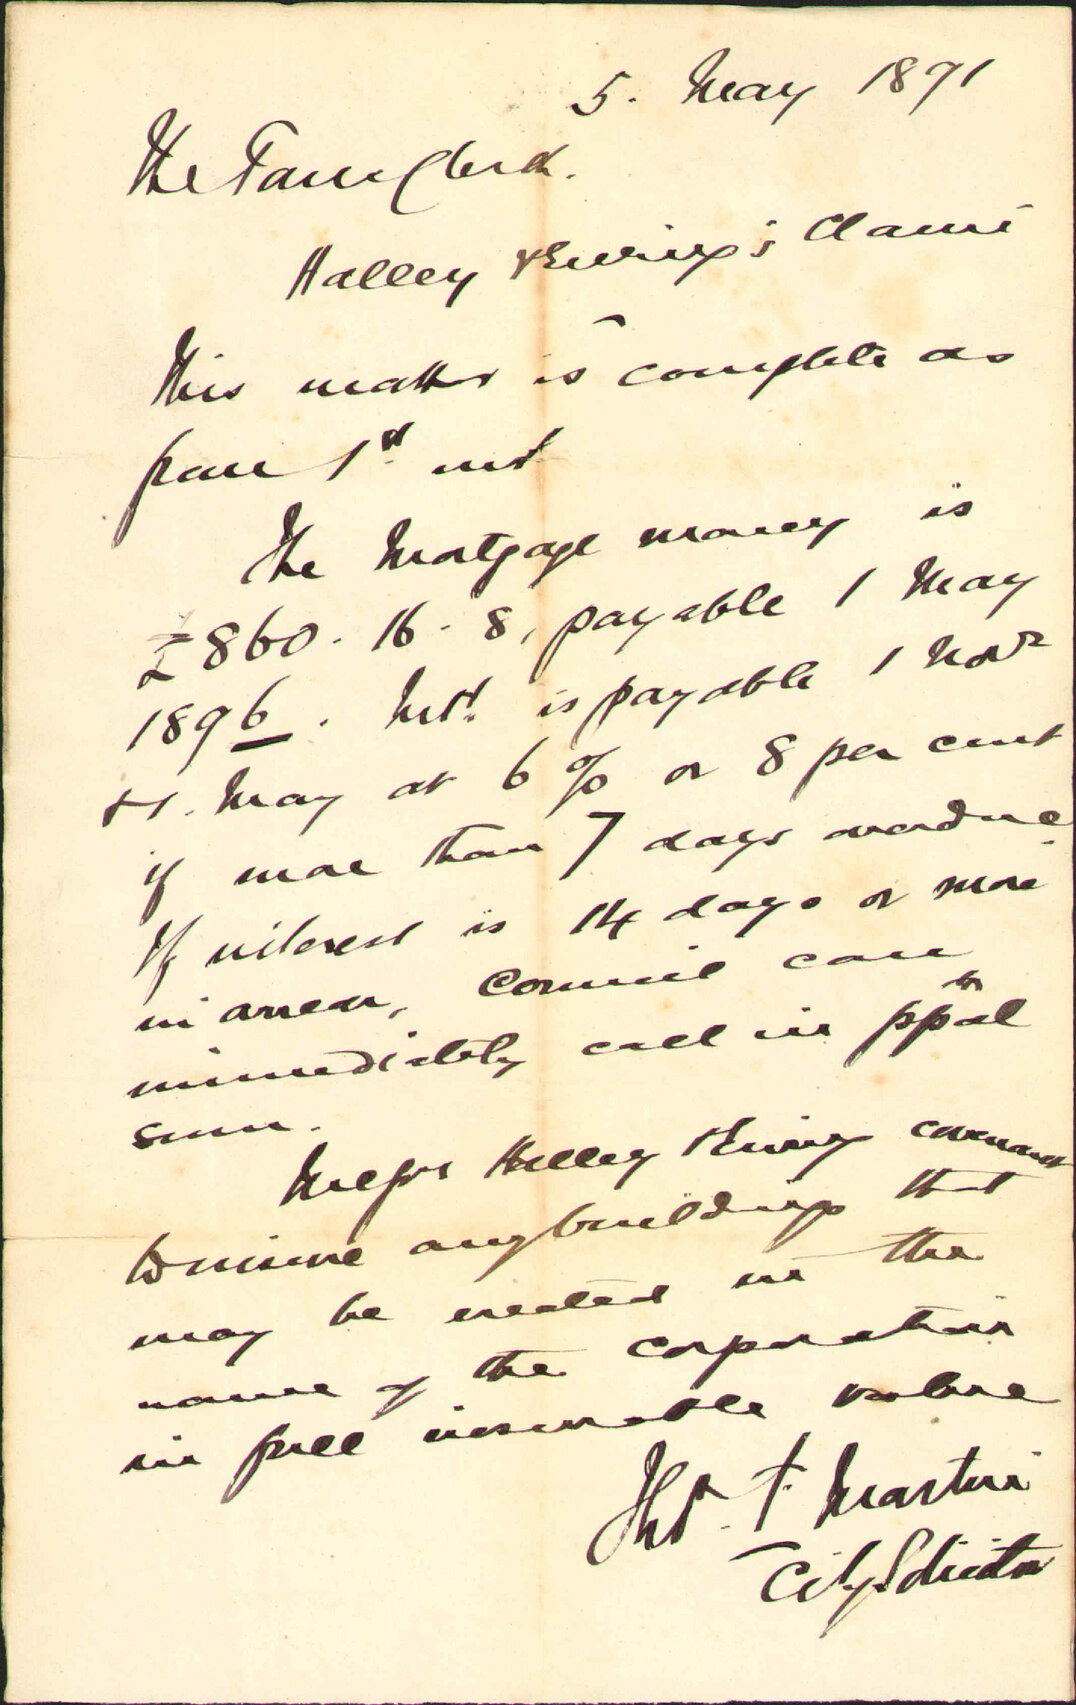 5. May 1891
The Town Clerk.
Halley & Ewing's Claim
This matter is complete as
from 1st inst
The Mortgage money is
£860. 16. 8, payable 1 May
1896. Intt. is payable 1 Novr
& 1. May at 6 % or 8 per cent
if more than 7 days overdue.
If interest is 14 days or more
in arrear, Council can
immediately call in ppal
sum.
Messrs Halley & Ewing covenant
to insure any buildings that
may be erected in the
name of the corporation
in full insurable value
Thos. F. Martin
City Solicitor